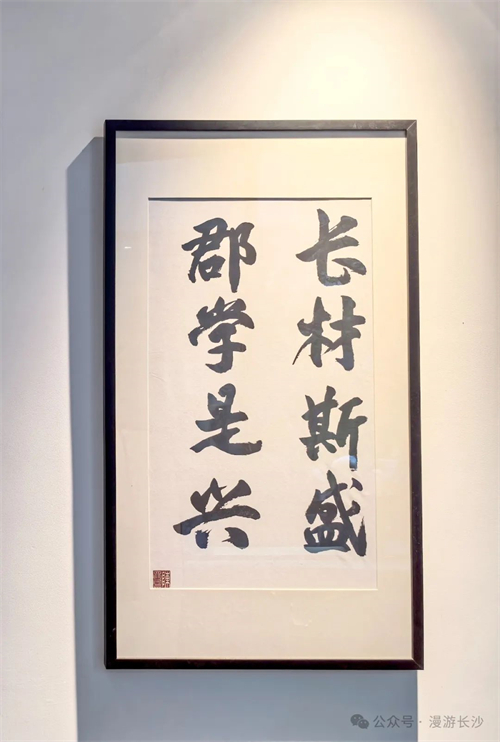 长材斯盛
郡学是兴
公众号·漫游长沙